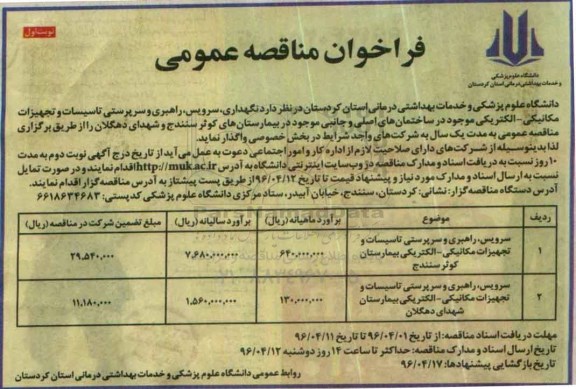 نوبت اول
فراخوان مناقصه عمومی
دانشگاه علوم پزشکی
و خدمات بهداشتی درمانی استان کردستان
دانشگاه علوم پزشکی و خدمات بهداشتی درمانی استان کردستان در نظر دارد نگهداری، سرویس، راهبری و سرپرستی تاسیسات و تجهیزات
مکانیکی – الکتریکی موجود در ساختمان های اصلی و جانبی موجود در بیمارستان های کوثر سنندج و شهدای دهگلان را از طریق برگزاری
مناقصه عمومی به مدت یک سال به شرکت های واجد شرایط در بخش خصوصی واگذار نماید.
لذا بدینوسیله از شرکت های دارای صلاحیت لازم از اداره کار و امور اجتماعی دعوت به عمل می آید از تاریخ درج آگهی نوبت دوم به مدت
۱۰ روز نسبت به دریافت اسناد و مدارک مناقصه در وب سایت اینترنتی دانشگاه به آدرس http://muk.ac.ir اقدام نمایند و در صورت تمایل
نسبت به ارسال اسناد و مدارک مورد نیاز و پیشنهاد قیمت تا تاریخ ۹۶/۰۴/۱۲ از طریق پست پیشتاز به آدرس مناقصه گزار اقدام نمایند.
آدرس دستگاه مناقصه گزار: نشانی: کردستان، سنندج، خیابان آبیدر، ستاد مرکزی دانشگاه علوم پزشکی کدپستی: ۶۶۱۸۶۳۴۶۸۳
ردیف موضوع برآورد ماهیانه (ریال) برآورد سالیانه (ریال) مبلغ تضمین شرکت در مناقصه (ریال)
۱ سرویس، راهبری و سرپرستی تاسیسات و
تجهیزات مکانیکی – الکتریکی بیمارستان
کوثر سنندج
۶۴۰,۰۰۰,۰۰۰ ۷,۶۸۰,۰۰۰,۰۰۰ ۲۹,۵۴۰,۰۰۰
۲ سرویس، راهبری و سرپرستی تاسیسات و
تجهیزات مکانیکی – الکتریکی بیمارستان
شهدای دهگلان
۱۳۰,۰۰۰,۰۰۰ ۱,۵۶۰,۰۰۰,۰۰۰ ۱۱,۱۸۰,۰۰۰
مهلت دریافت اسناد مناقصه: از تاریخ ۹۶/۰۴/۰۱ تا تاریخ ۹۶/۰۴/۱۱
تاریخ ارسال اسناد و مدارک مناقصه: حداکثر تا ساعت ۱۴ روز دوشنبه ۹۶/۰۴/۱۲
تاریخ بازگشایی پیشنهادها: ۹۶/۰۴/۱۷
روابط عمومی دانشگاه علوم پزشکی و خدمات بهداشتی درمانی استان کردستان